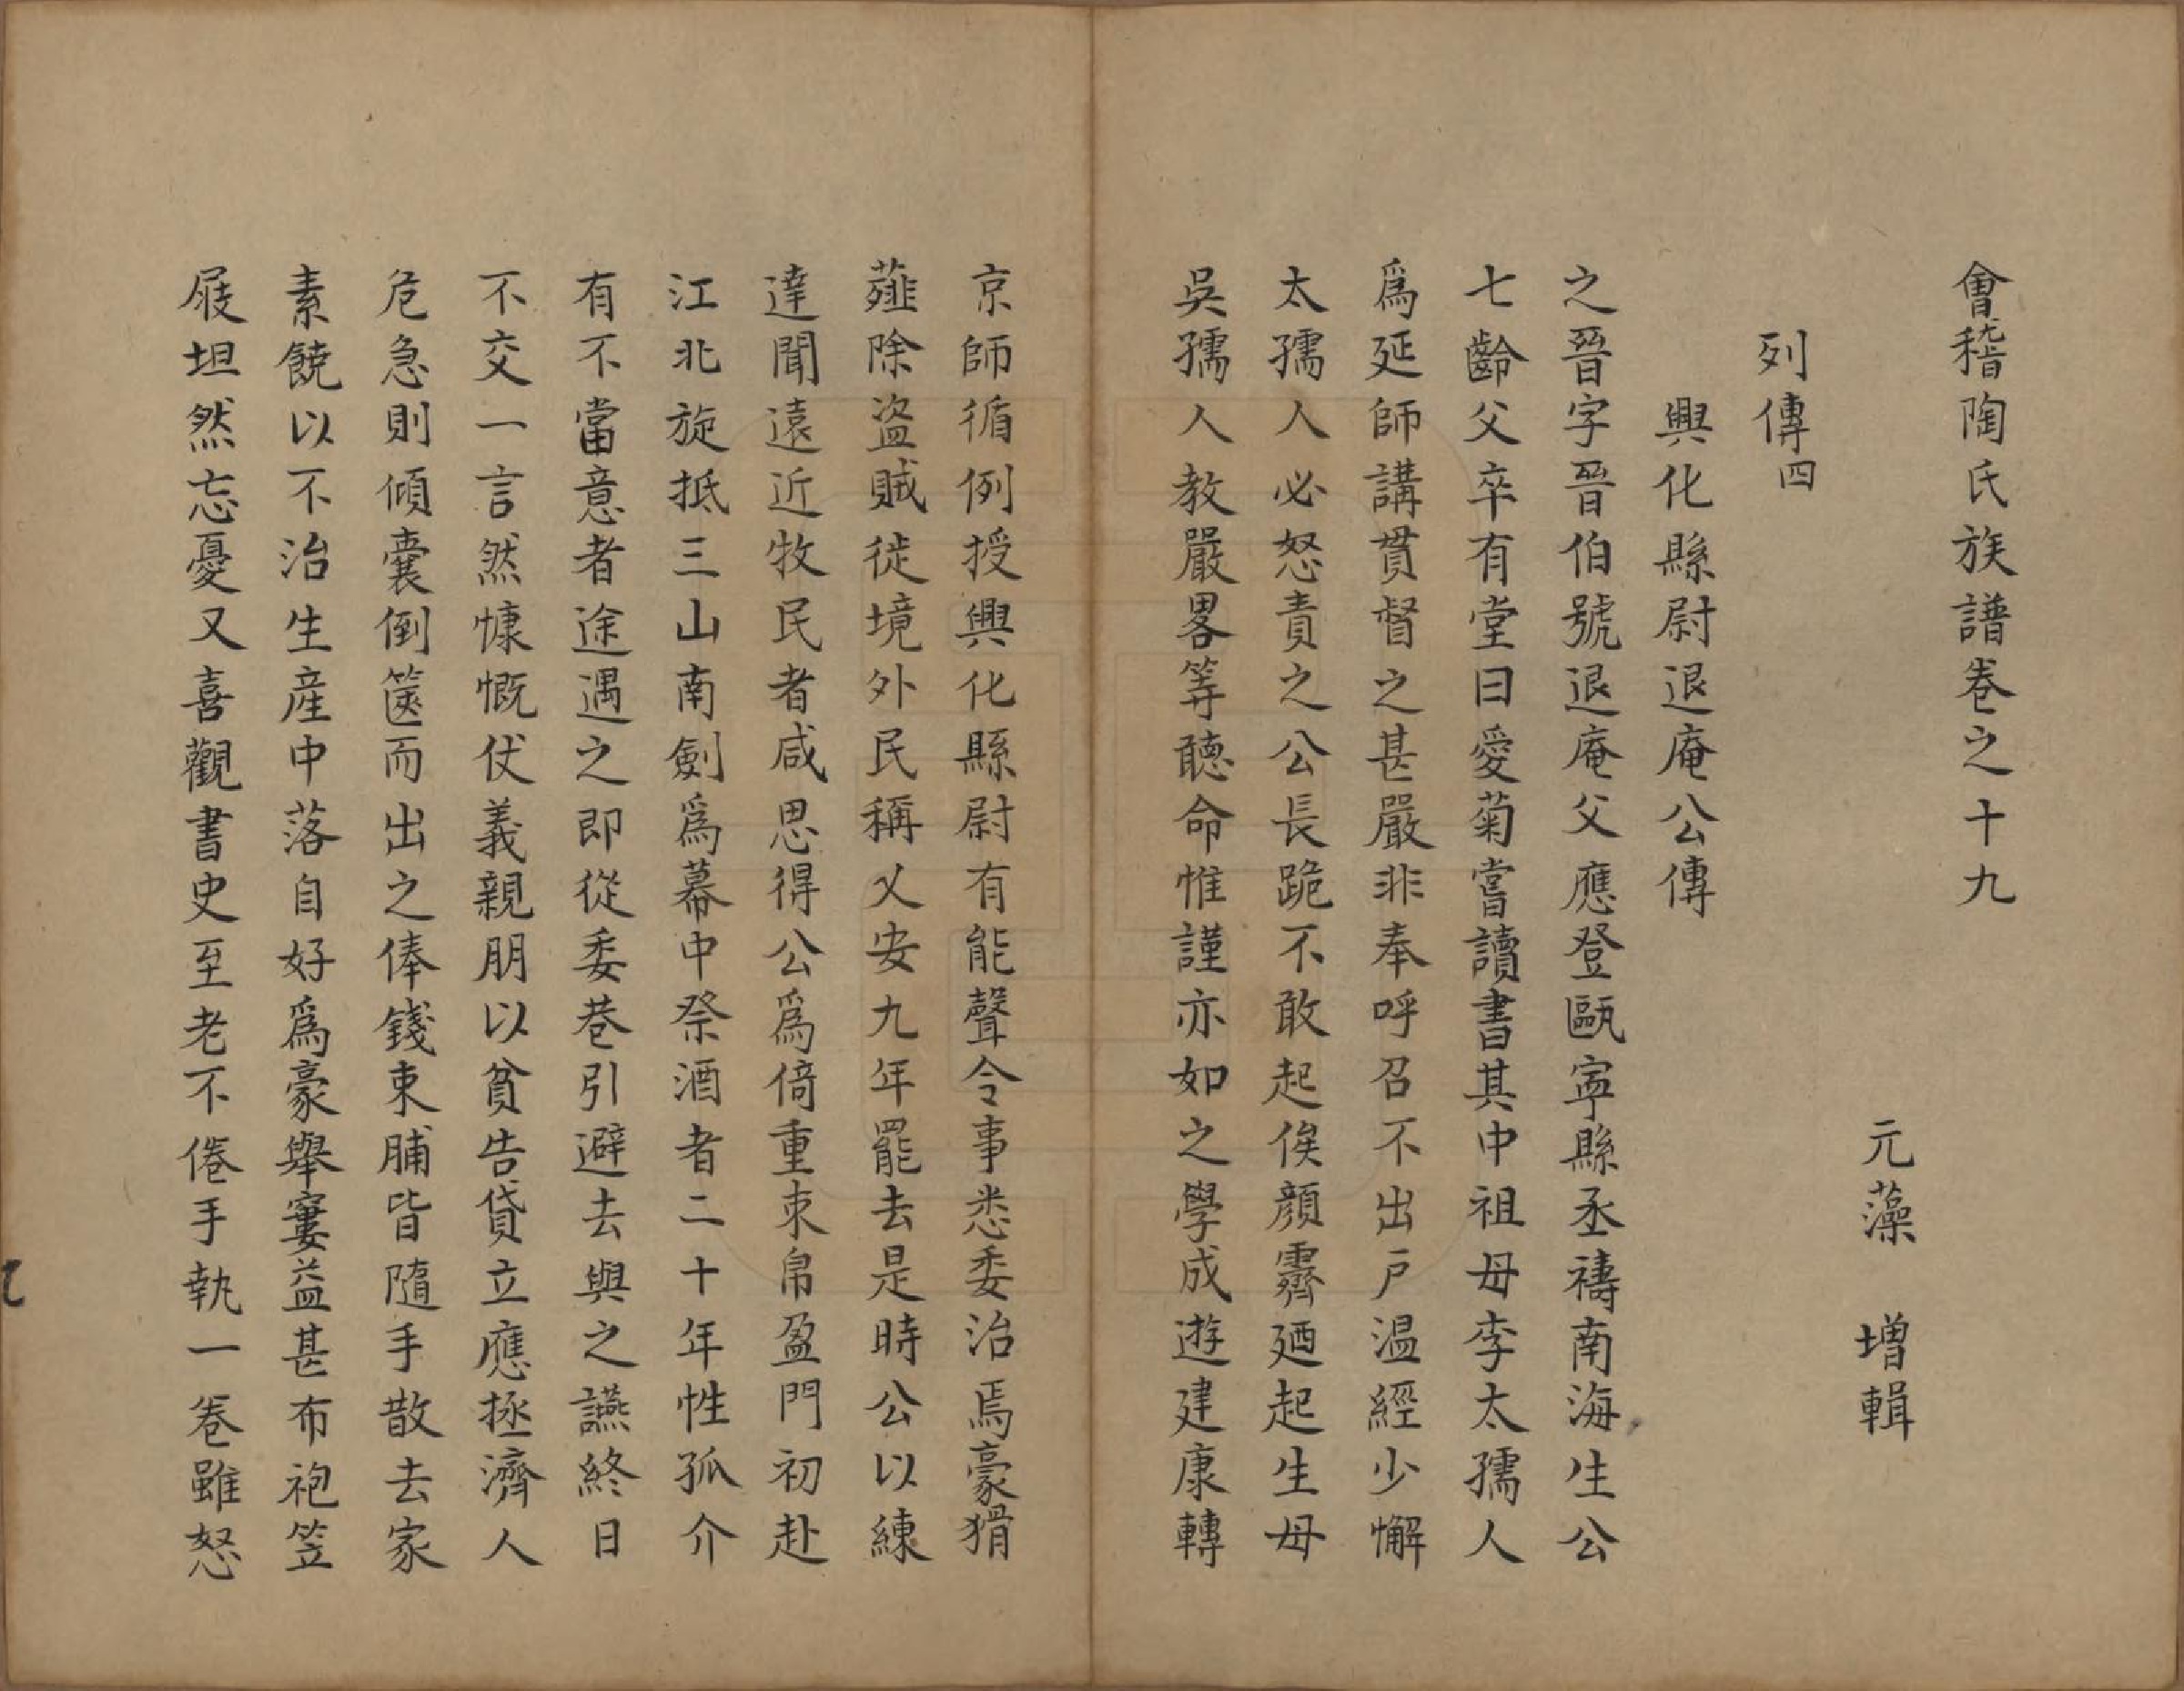 會稽陶氏族譜卷之十九
元藻　增輯
列傳四
興化縣尉退庵公傳
之晉字晉伯號退庵父應登甌寧縣丞禱南海生公
七齡父卒有堂曰愛菊嘗讀書其中祖母李太孺人
爲延師講貫督之甚嚴非奉呼召不出戶温經少懈
太孺人必怒責之公長跪不敢起俟顏霽廼起生母
吳孺人教嚴畧等聽命惟謹亦如之學成遊建康轉
京師循例授興化縣尉有能聲令事悉委治焉豪猾
薙除盜賊徙境外民稱乂安九年罷去是時公以練
達聞遠近牧民者咸思得公爲倚重束帛盈門初赴
江北旋抵三山南劍爲幕中祭酒者二十年性孤介
有不當意者途遇之即從委巷引避去與之讌終日
不交一言然慷慨伏義親朋以貧告貸立應拯濟人
危急則傾囊倒篋而出之俸錢束脯皆隨手散去家
素饒以不治生産中落自好爲豪舉窶益甚布袍笠
屐坦然忘憂又喜觀書史至老不倦手執一卷雖怒